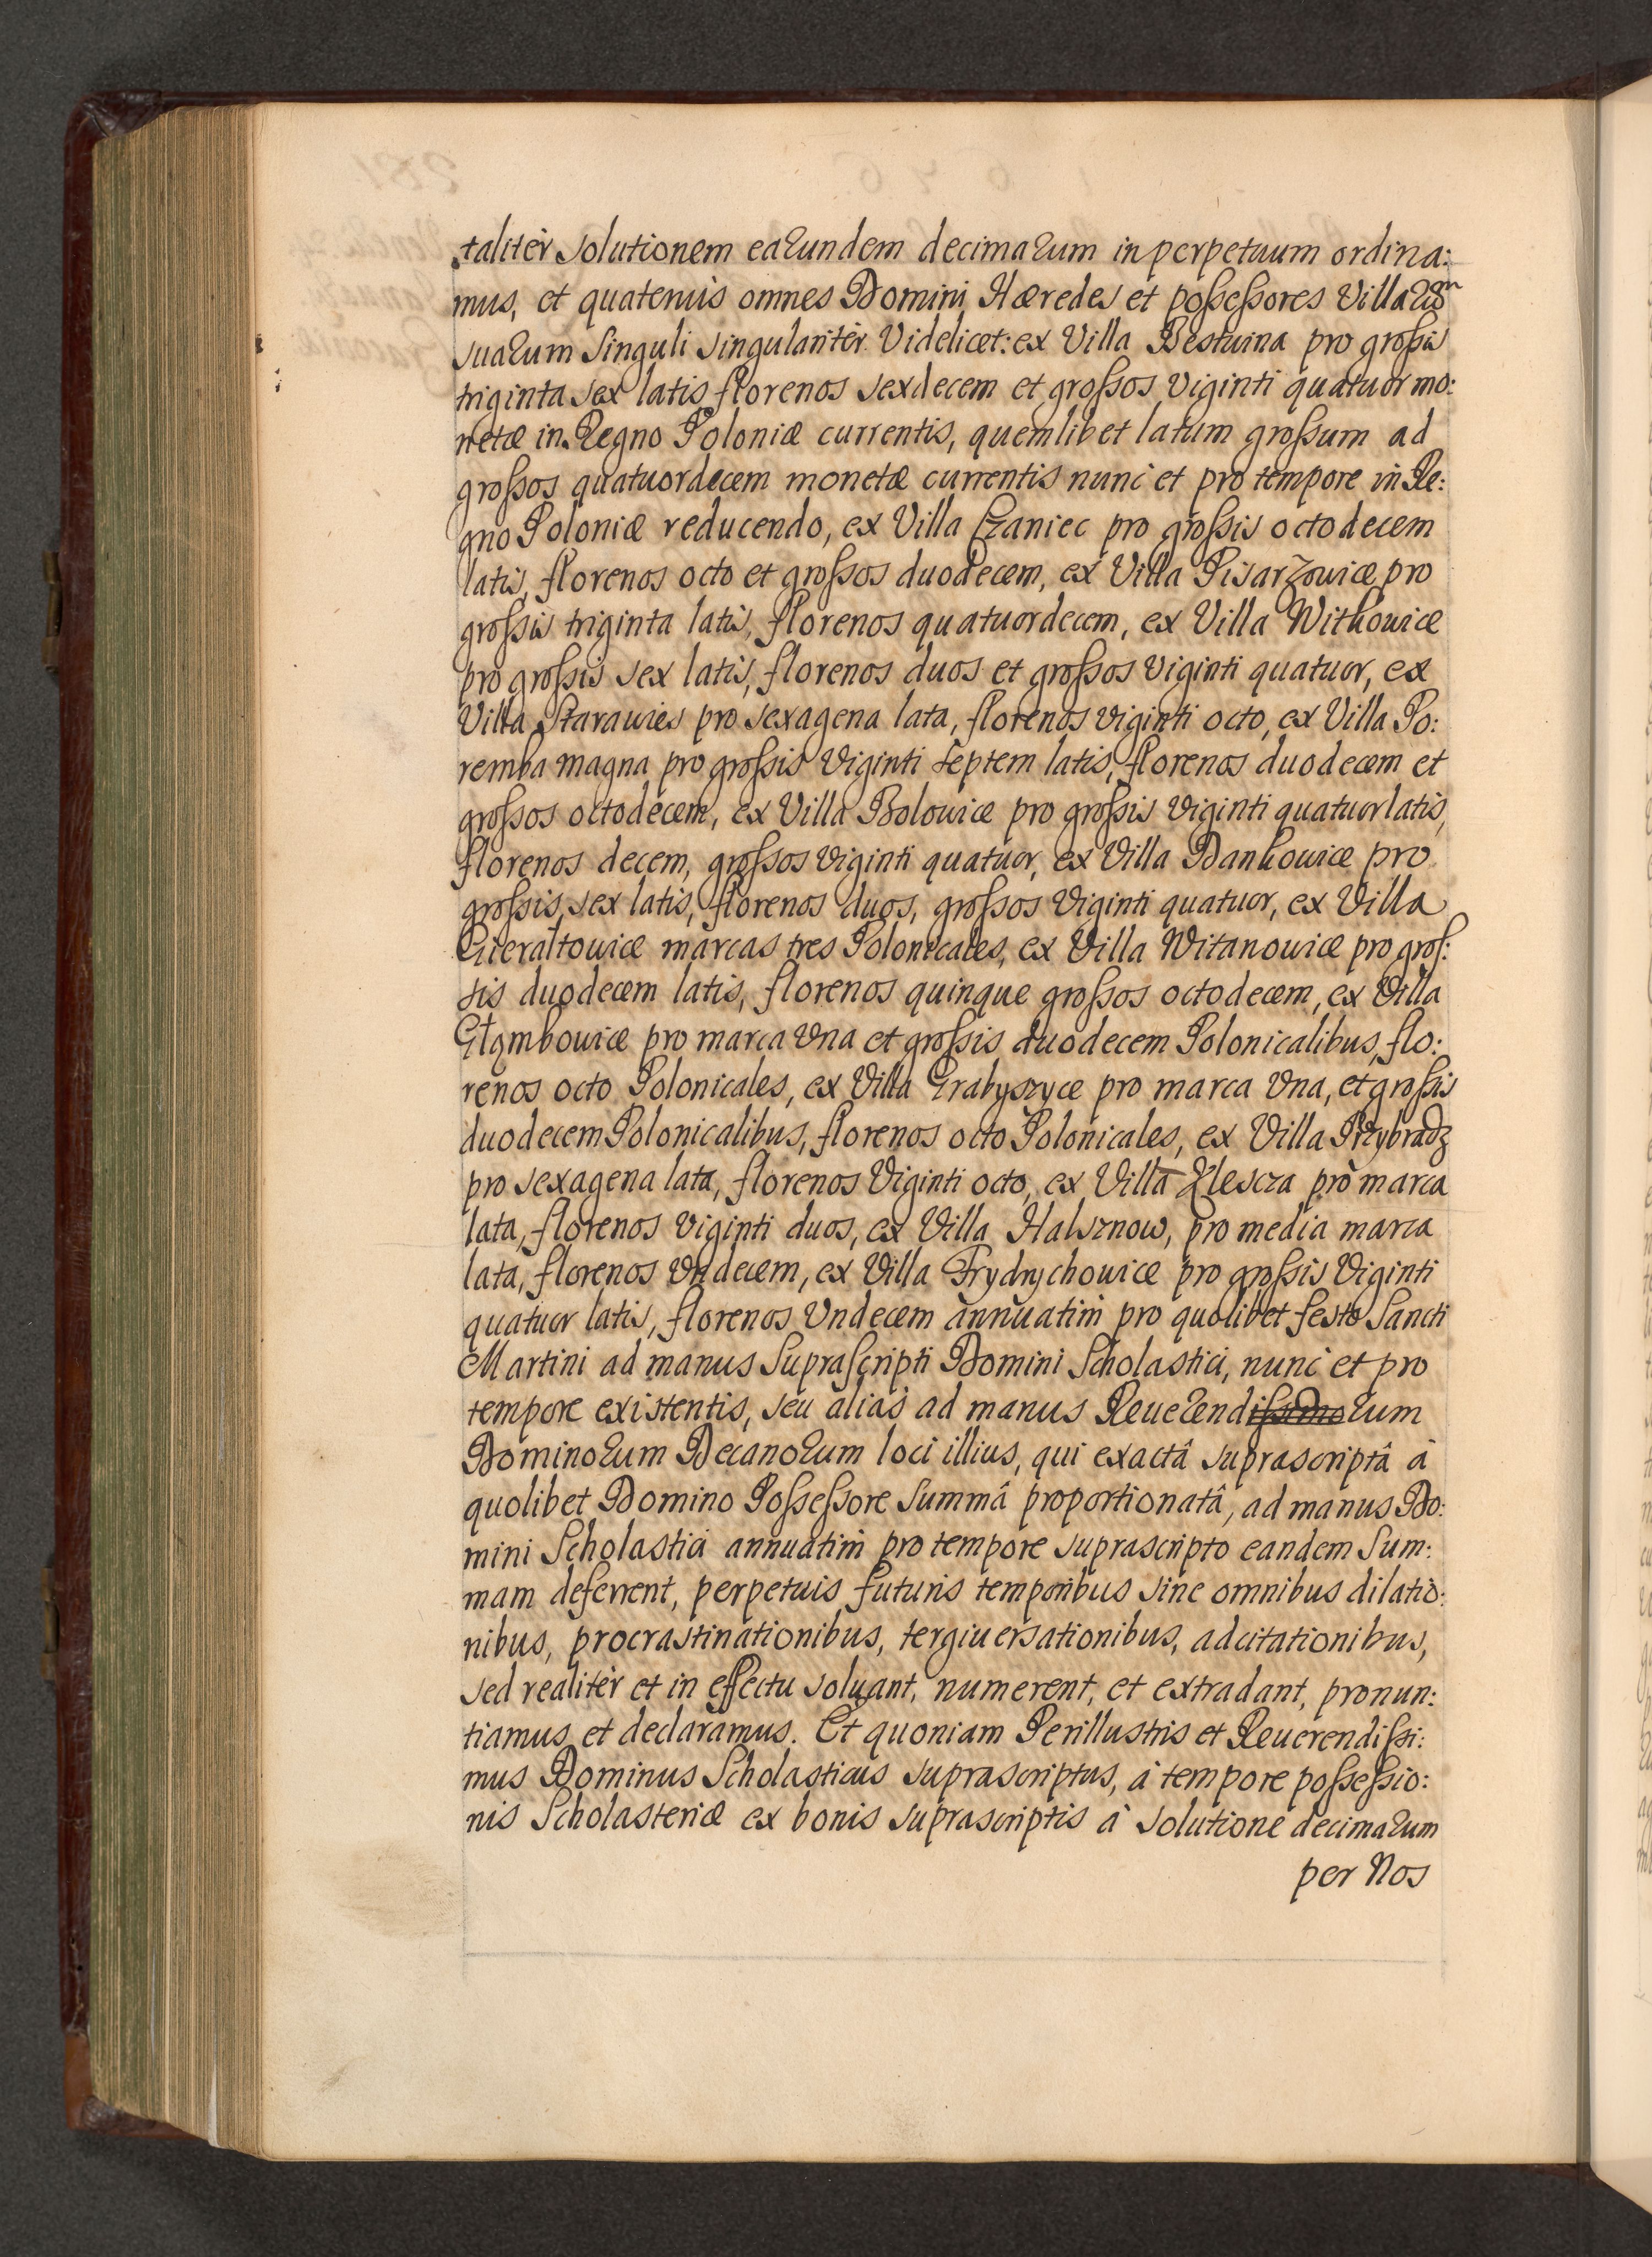 talitèr solutionem earundem decimarum in perpetuum ordina:
mus, et quatenus omnes Domini Hæredes et possessores Villarum
suarum Singuli singularitèr Videlicet: ex Villa Bestwina pro grossis
triginta sex latis florenos sexdecem et grossos viginti quatuor mo:
netæ in Regno Poloniæ currentis, quemlibet latum grossum ad
grossos quatuordecem monetæ currentis nunc et pro tempore in Re:
gno Poloniæ reducendo, ex Villa Czaniec pro grossis octodecem
latis, florenos octo et grossos duodecem, ex Villa Pisarzowice pro
grossis triginta latis, florenos quatuordecem, ex Villa Witkowice
pro grossis sex latis, florenos duos et grossos viginti quatuor, ex
Villa Starawies pro sexagena lata, florenos viginti octo, ex Villa Po:
remba magna pro grossis Viginti septem latis, florenos duodecem et
grossos octodecem, ex Villa Bolowice pro grossis viginti quatuor latis,
florenos decem, grossos viginti quatuor, ex Villa Dankowice pro
grossis, sex latis, florenos duos, grossos Viginti quatuor, ex Villa
Gieraltowice marcas tres Polonicales, ex Villa Witanowice pro gros:
sis duodecem latis, florenos quinque grossos octodecem, ex Villa
Głąmbowice pro marca Vna et grossis duodecem Polonicalibus, flo:
renos octo Polonicales, ex Villa Grabyszyce pro marca Vna, et grossis
duodecem Polonicalibus, florenos octo Polonicales, ex Villa Przybradz
pro sexagena lata, florenos Viginti octo, ex Villa Klescza pro marca
lata, florenos viginti duos, ex Villa Halsznow, pro media marca
lata, florenos Vndecem, ex Villa Frydrychowice pro grossis Viginti
quatuor latis, florenos Vndecem annuatim pro quolibet festo Sancti
Martini ad manus Suprascripti Domini Scholastici, nunc et pro
tempore existentis, seu alias ad manus Reuerendissimorum
Dominorum Decanorum loci illius, qui exactâ suprascriptâ à
quolibet Domino Possessore Summâ proportionatâ, ad manus Do:
mini Scholastici annuatim pro tempore suprascripto eandem Sum:
mam deferrent, perpetuis futuris temporibus sine omnibus dilatio:
nibus, procrastinationibus, tergiuersationibus, adcitationibus,
sed realitèr et in effectu soluant, numerent, et extradant, pronun:
tiamus et declaramus. Et quoniam Perillustris et Reuerendissi:
mus Dominus Scholasticus suprascriptus, à tempore possessio:
nis Scholasteriæ ex bonis suprascriptis à solutione decimarum
per Nos